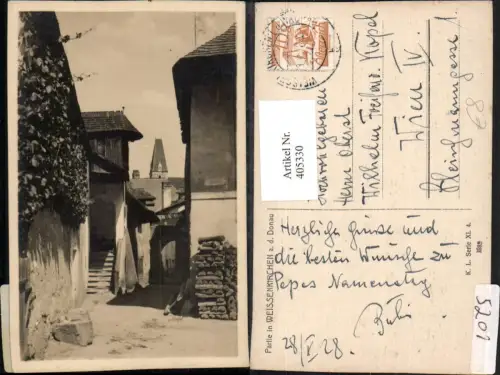 Artikel Nr.
405330
Herrn Oberst
Wilhelm Freiherr
Wien IV.
Herzliche Grüsse und
die besten Wünsche zu
Pepes Namenstag
Bubi
28/V. 28.
Partie in WEISSENKIRCHEN a. d. Donau
K. L. Serie XI. 4.
5201